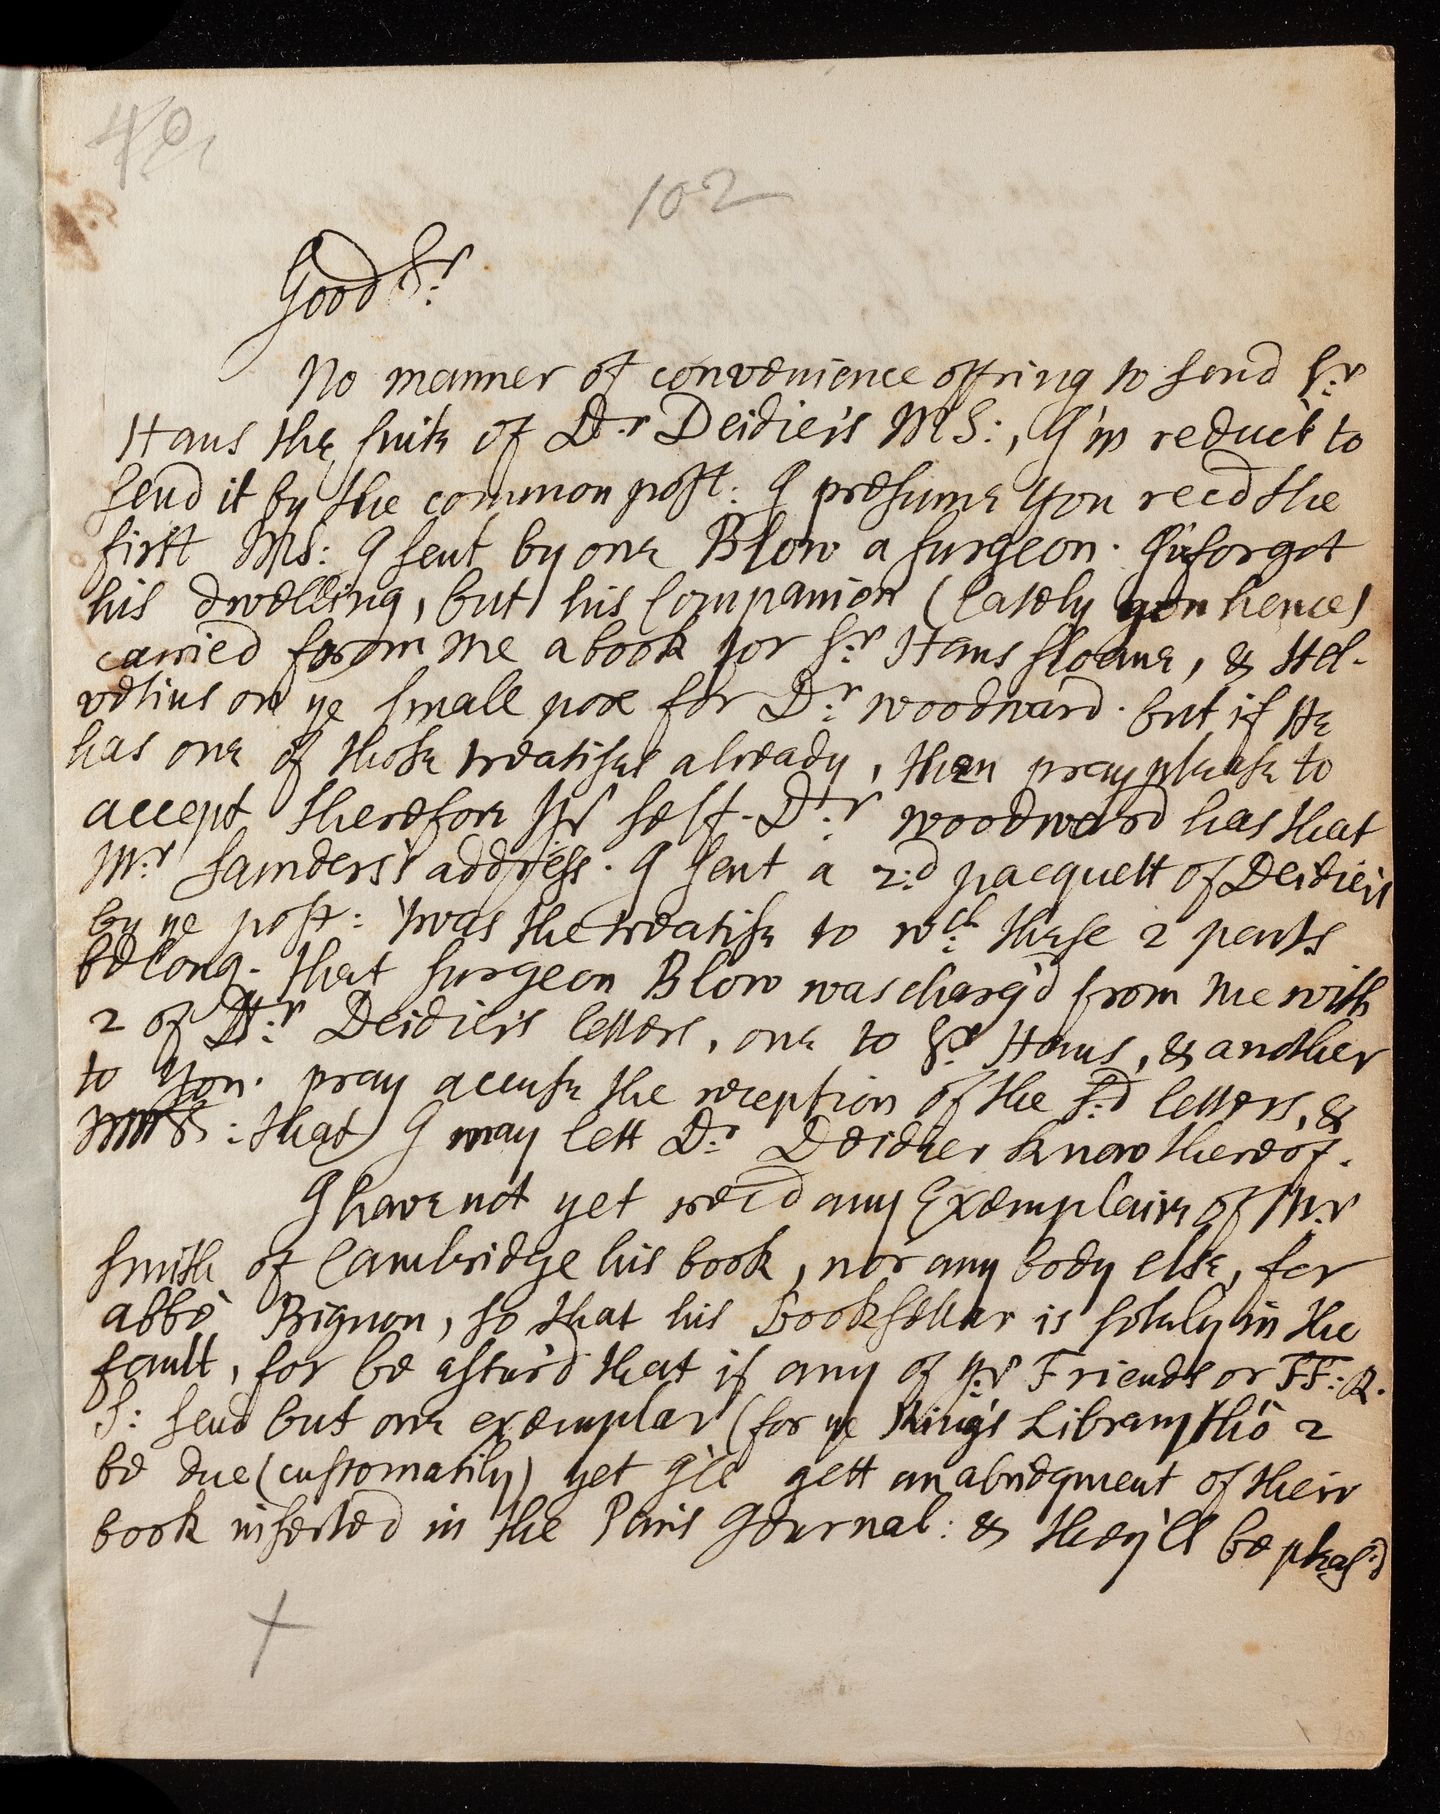 40
102
Good Sr:
No manner of convenience offring to send Sr:
Hans the suite of Dr: Deidier's MS:, I'm reduc't to
send it by the common post: I presume you recd the
first MS: I sent by one Blow a surgeon. I've forgot
his dwelling, but his Companion (lately gon hence)
carried from me a book for Sr: Hans Sloane, & Hel-
vetius on ye small pox for Dr: Woodward. but if He
has one of those treatises already, then pray please to
accept therefore yr self. Dr: Woodward has that
Mr: Sanders's address. I sent a 2:d pacquett of Deidier's
by ye post: 'twas the treatise to wch: these 2 parts
belong. that surgeon Blow was charg'd from me with
2 of Dr: Deidier's letters, one to Sr: Hans, & another
to you. pray accuse the reception of the s:d letters, &
MSS: that I may lett Dr: Deidier know thereof.
I have not yet rec'd any Exemplaire of Mr:
Smith of Cambridge his book, nor any body else, for
abbé Bignon, so that his bookseller is solely in the
fault, for be assur'd that if any of yr: Friends or FF: R.
S: send but one exemplar (for ye King's Library) tho' 2
be due (customarily) yet I'le gett an abridgment of their
book inserted in the Paris Journal: & they'll be pleas'd